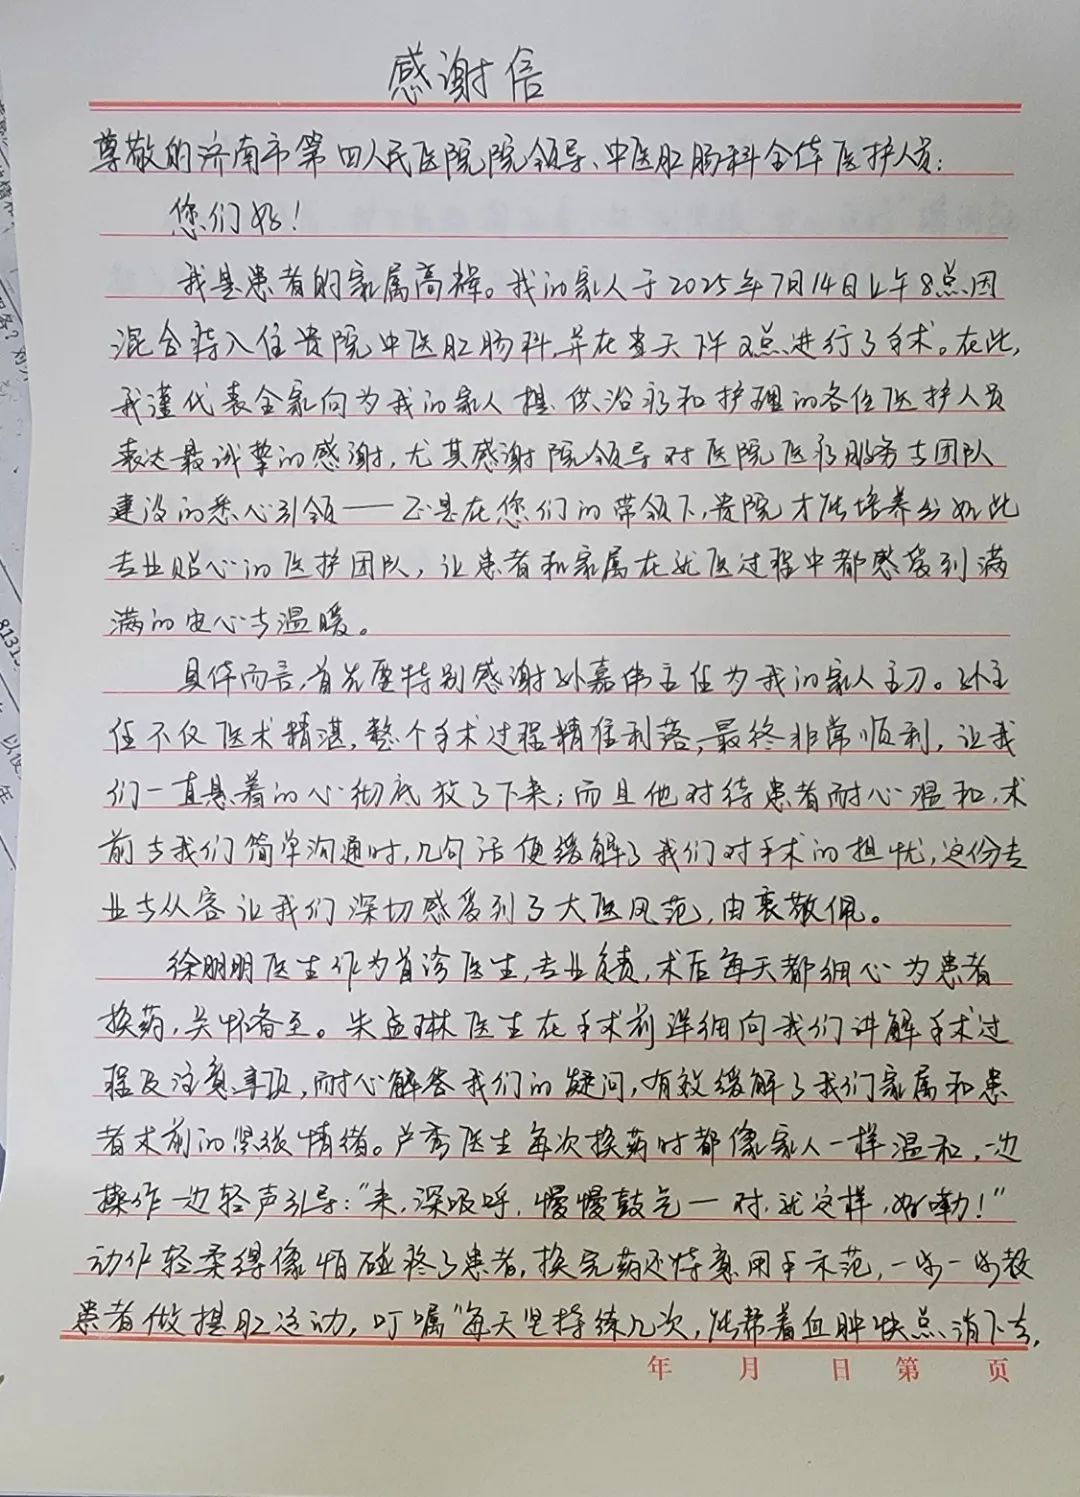 感谢信
尊敬的济南市第四人民医院院领导、中医肛肠科全体医护人员:
您们好!
我是患者的家属高辉。我的家人于2025年7月14日上午8点因
混合痔入住贵院中医肛肠科,并在当天下午2点进行了手术。在此,
我谨代表全家向为我的家人提供治疗和护理的各位医护人员
表达最诚挚的感谢,尤其感谢院领导对医院医疗服务与团队
建设的悉心引领——正是在您们的带领下,贵院才能培养出如此
专业贴心的医护团队,让患者和家属在就医过程中都感受到满
满的安心与温暖。
具体而言,首先要特别感谢孙嘉伟主任为我的家人主刀。孙主
任不仅医术精湛,整个手术过程精准利落,最终非常顺利,让我
们一直悬着的心彻底放了下来;而且他对待患者耐心温和,术
前与我们简单沟通时,几句话便缓解了我们对手术的担忧,这份专
业与从容让我们深切感受到了大医风范,由衷敬佩。
徐明明医生作为首诊医生,专业负责,术后每天都细心为患者
换药,关怀备至。朱孟琳医生在手术前详细向我们讲解手术过
程及注意事项,耐心解答我们的疑问,有效缓解了我们家属和患
者术前的紧张情绪。卢秀医生每次换药时都像家人一样温和,一边
操作一边轻声引导:"来,深吸呼,慢慢鼓气—对,就这样,好嘞!"
动作轻柔得像怕碰疼了患者,换完药还特意用手示范,一步一步教
患者做提肛运动,叮嘱"每天坚持练几次,能帮着血肿快点消下去,
年 月 日 第 页